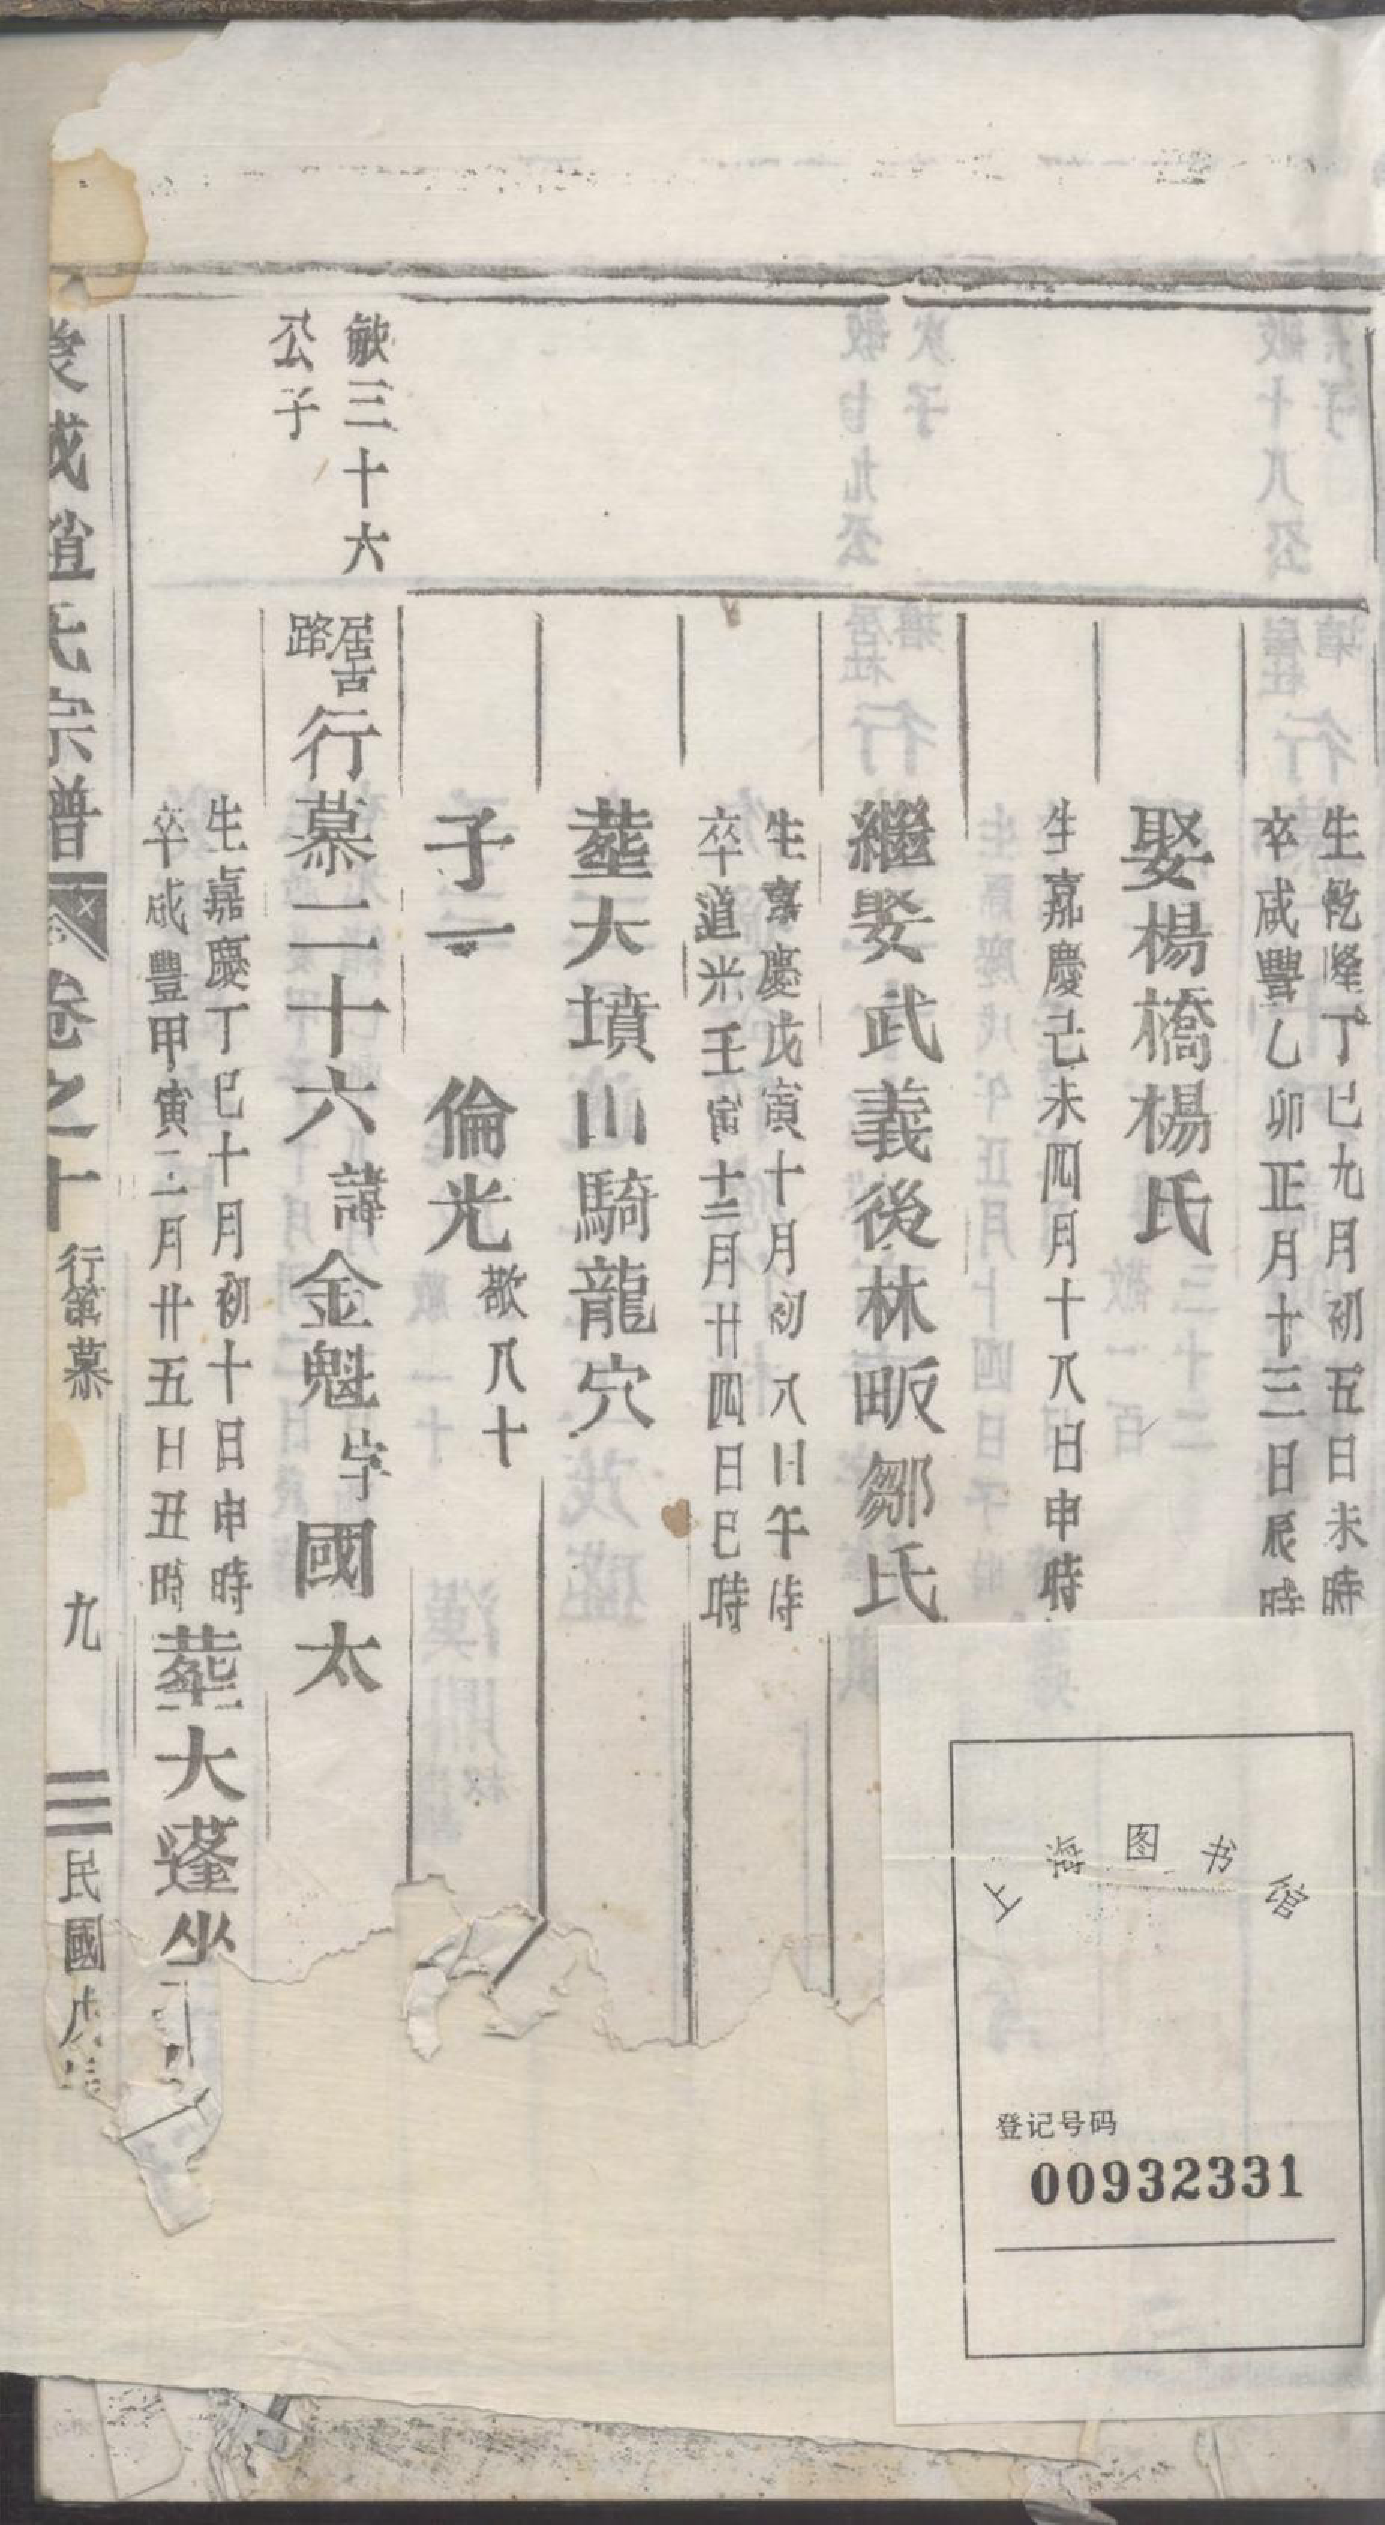 生乾隆丁巳九月初五日未時
卒咸豐乙卯正月十三日辰時
娶楊橋楊氏
生嘉慶己未四月十八日申時
繼娶武義後林畈鄒氏
生嘉慶戊寅十月初八日午時
卒道光壬寅十二月廿四日巳時
葬大墳山騎龍穴
子一 倫光 敬八十
敏三十六
公子
居古
路
行慕二十六 諱金魁 字國太
生嘉慶丁巳十月初十日申時
卒咸豐甲寅二月廿五日丑時
葬大蓬坐
趙氏宗譜 卷之十 行第慕 九 民國
上海图书馆
登记号码
00932331